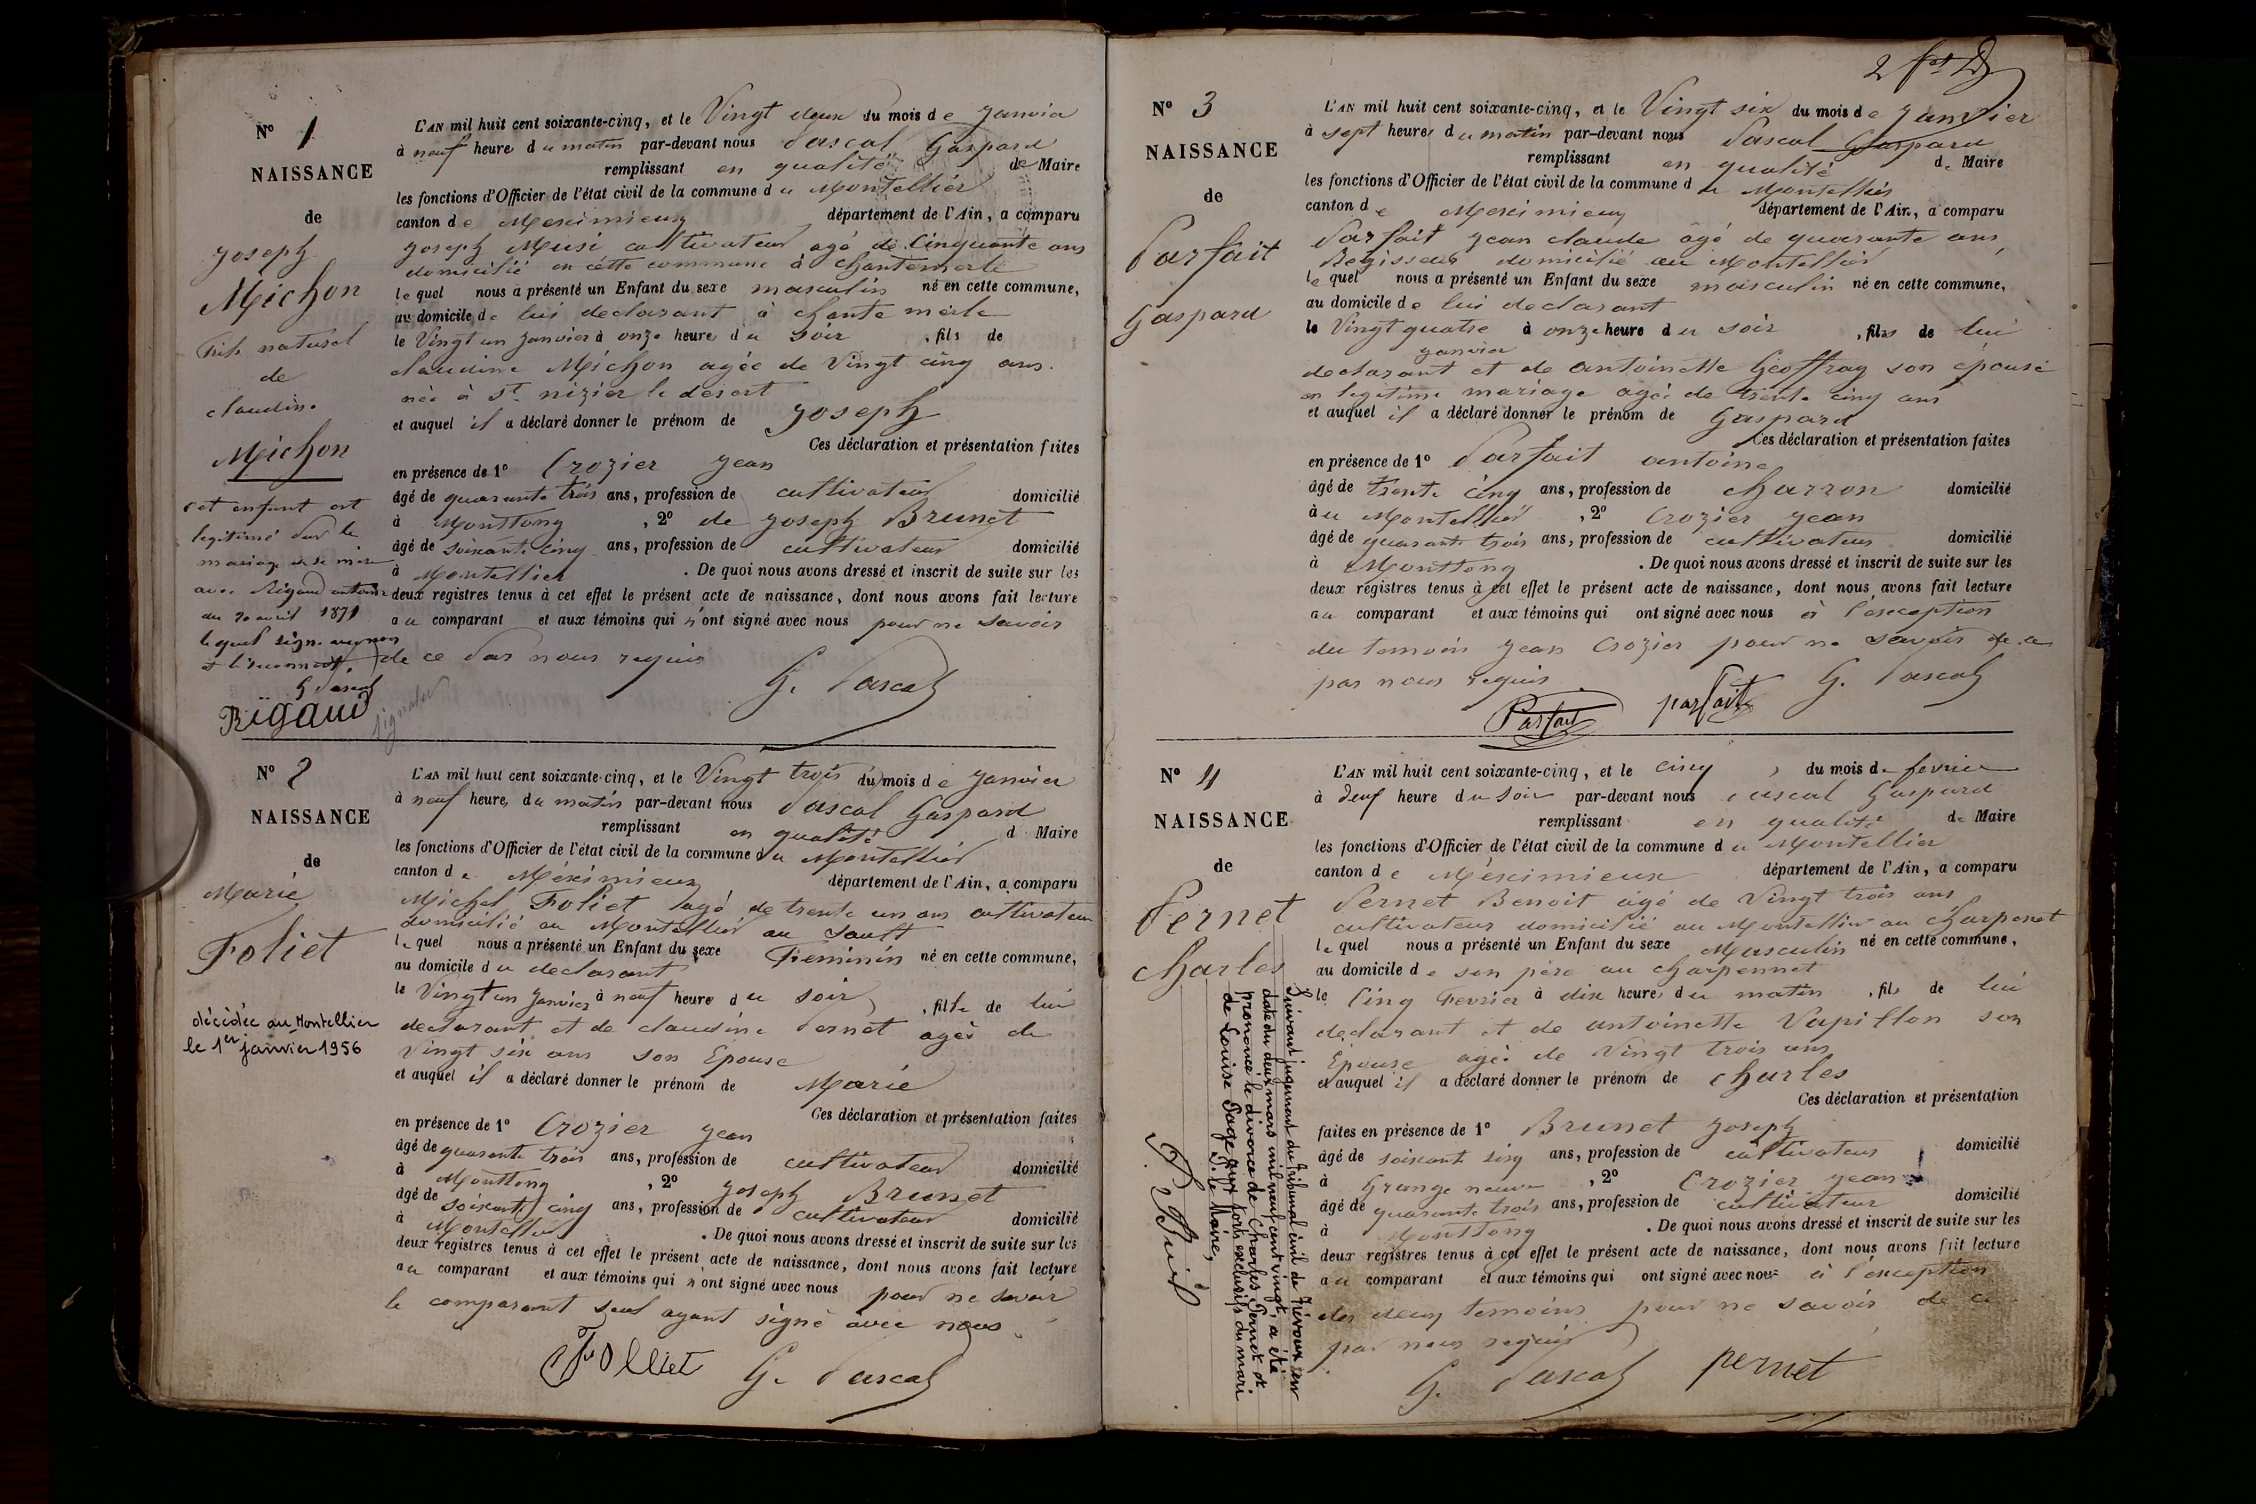 N° 1
NAISSANCE
de
Joseph
Michon
fils naturel
de
claudine
Michon
cet enfant est
legitimé par le
mariage de sa mère
avec Rigaud antoine
du 20 avril 1871
lequel signe avec nous
G Pascal
RiGaud
L'AN mil huit cent soixante-cinq, et le Vingt deux du mois de Janvier
à neuf heure du matin par-devant nous Pascal Gaspard
remplissant en qualité de Maire
les fonctions d'Officier de l'état civil de la commune du Montellier
canton de Meximieux département de l'Ain, a comparu
Joseph Musi cultivateur agé de Cinquante ans
domicilié en cette commune à Chantemerle
lequel nous a présenté un Enfant du sexe masculin né en cette commune,
au domicile de lui declarant à chante merle
le Vingt un Janvier à onze heure du soir, fils de
claudine Michon agée de Vingt cinq ans.
née à St nizier le desert
et auquel il a déclaré donner le prénom de Joseph
Ces déclaration et présentation faites
en présence de 1° Crozier Jean
âgé de quarante trois ans, profession de cultivateur domicilié
à Monttong, 2° de Joseph Brunet
âgé de soixante cinq ans, profession de cultivateur domicilié
à Montellier. De quoi nous avons dressé et inscrit de suite sur les
deux registres tenus à cet effet le présent acte de naissance, dont nous avons fait lecture
au comparant et aux témoins qui n'ont signé avec nous pour ne savoir
de ce par nous requis
G. Pascal
N° 2
NAISSANCE
de
Marie
Foliet
décédée au Montellier
le 1er janvier 1956
L'AN mil huit cent soixante-cinq, et le Vingt trois du mois de Janvier
à neuf heure, du matin par-devant nous Pascal Gaspard
remplissant en qualité d Maire
les fonctions d'Officier de l'état civil de la commune du Montellier
canton de Méximieux département de l'Ain, a comparu
Michel Foliet agé de trente un ans cultivateur
domicilié au Montellier au Sault
lequel nous a présenté un Enfant du sexe Feminin né en cette commune,
au domicile du declarant
le Vingt un Janvier à neuf heure du soir, fille de lui
declarant et de claudine Pernet agée de
Vingt six ans son Epouse
et auquel il a déclaré donner le prénom de Marie
Ces déclaration et présentation faites
en présence de 1° Crozier Jean
âgé de quarante trois ans, profession de cultivateur domicilié
à Monttong, 2° Joseph Brunet
âgé de soixante cinq ans, profession de cultivateur domicilié
à Montellier. De quoi nous avons dressé et inscrit de suite sur les
deux registres tenus à cet effet le présent acte de naissance, dont nous avons fait lecture
au comparant et aux témoins qui n'ont signé avec nous pour ne savoir
le comparant seul ayant signé avec nous
Folliet G. Pascal
N° 3
NAISSANCE
de
Parfait
Gaspard
L'AN mil huit cent soixante-cinq, et le Vingt six du mois de Janvier
à sept heures du matin par-devant nous Pascal Gaspard
remplissant en qualité de Maire
les fonctions d'Officier de l'état civil de la commune du Montellier
canton de Meximieux département de l'Ain, a comparu
Parfait Jean claude âgé de quarante ans
Régisseur domicilié au Montellier
lequel nous a présenté un Enfant du sexe masculin né en cette commune,
au domicile de lui declarant
le Vingt quatre à onze heure du soir, fils de lui
janvier
declarant et de antoinette Geoffray son épouse
en legitime mariage agée de trente cinq ans
et auquel il a déclaré donner le prénom de Gaspard
Ces déclaration et présentation faites
en présence de 1° Parfait antoine
âgé de trente cinq ans, profession de charron domicilié
au Montellier, 2° Crozier Jean
âgé de quarante trois ans, profession de cultivateur domicilié
à Monttong. De quoi nous avons dressé et inscrit de suite sur les
deux registres tenus à cet effet le présent acte de naissance, dont nous avons fait lecture
au comparant et aux témoins qui ont signé avec nous à l'exception
du temoin Jean Crozier pour ne savoir de ce
par nous requis
Parfait parfait G. Pascal
N° 4
NAISSANCE
de
Pernet
Charles
Suivant jugement du Tribunal civil de Trévoux en
date du deux mars mil neuf cent vingt, a été
prononcé le divorce de Charles Pernet et
de Louise Page aux torts exclusifs du mari
P. le Maire,
L'AN mil huit cent soixante-cinq, et le cinq du mois de fevrier
à neuf heure du soir par-devant nous Pascal Gaspard
remplissant en qualité de Maire
les fonctions d'Officier de l'état civil de la commune du Montellier
canton de Méximieux département de l'Ain, a comparu
Pernet Benoit agé de Vingt trois ans
cultivateur domicilié au Montellier au Charpenet
lequel nous a présenté un Enfant du sexe Masculin né en cette commune,
au domicile de son père au charpennet
le Cinq Fevrier à dix heures du matin, fils de lui
declarant et de antoinette Papillon son
Epouse agée de Vingt trois ans
et auquel il a déclaré donner le prénom de charles
Ces déclaration et présentation
faites en présence de 1° Brunet Joseph
âgé de soixante sinq ans, profession de cultivateur domicilié
à Grange neuve, 2° Crozier Jean
âgé de quarante trois ans, profession de cultivateur domicilié
à Monttong. De quoi nous avons dressé et inscrit de suite sur les
deux registres tenus à cet effet le présent acte de naissance, dont nous avons fait lecture
au comparant et aux témoins qui ont signé avec nous à l'exception
des deux temoins pour ne savoir de ce
par nous requis
G. Pascal pernet